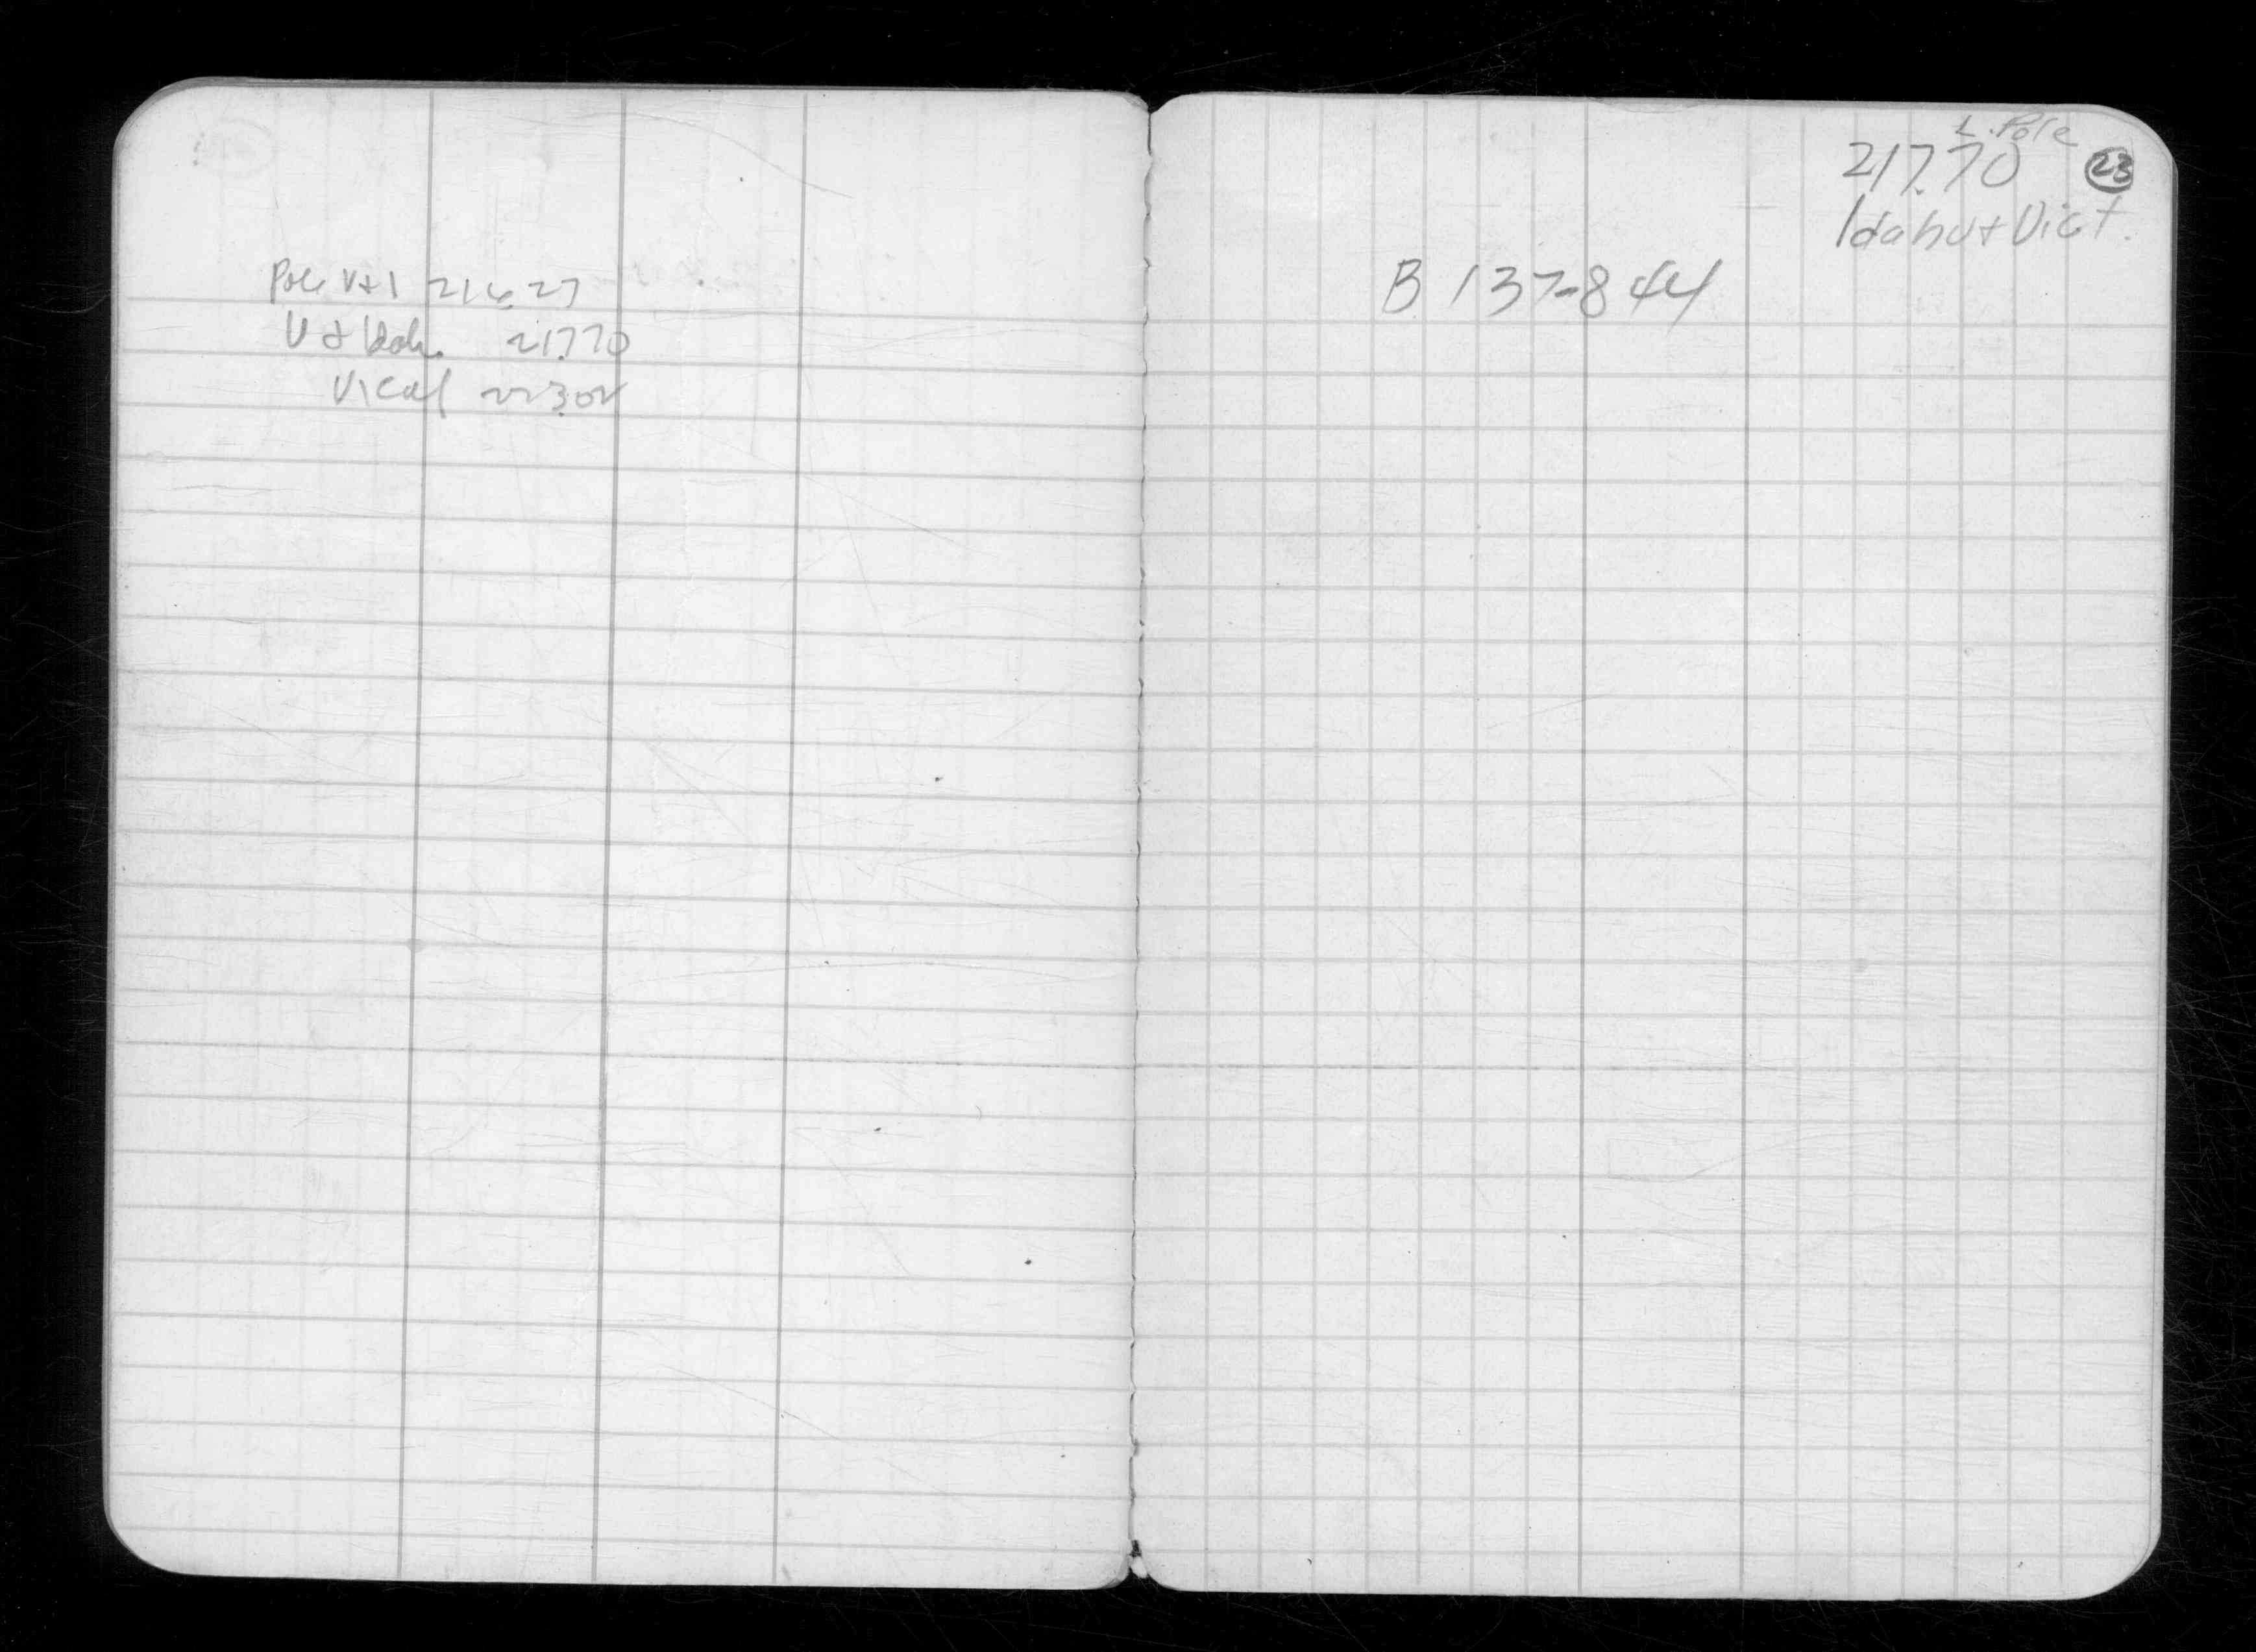 Pole V+1 216.27
V + Idah. 217.70
Vical 223.02
L. Pole
217.70
23
Idaho + Vict.
B 137-844